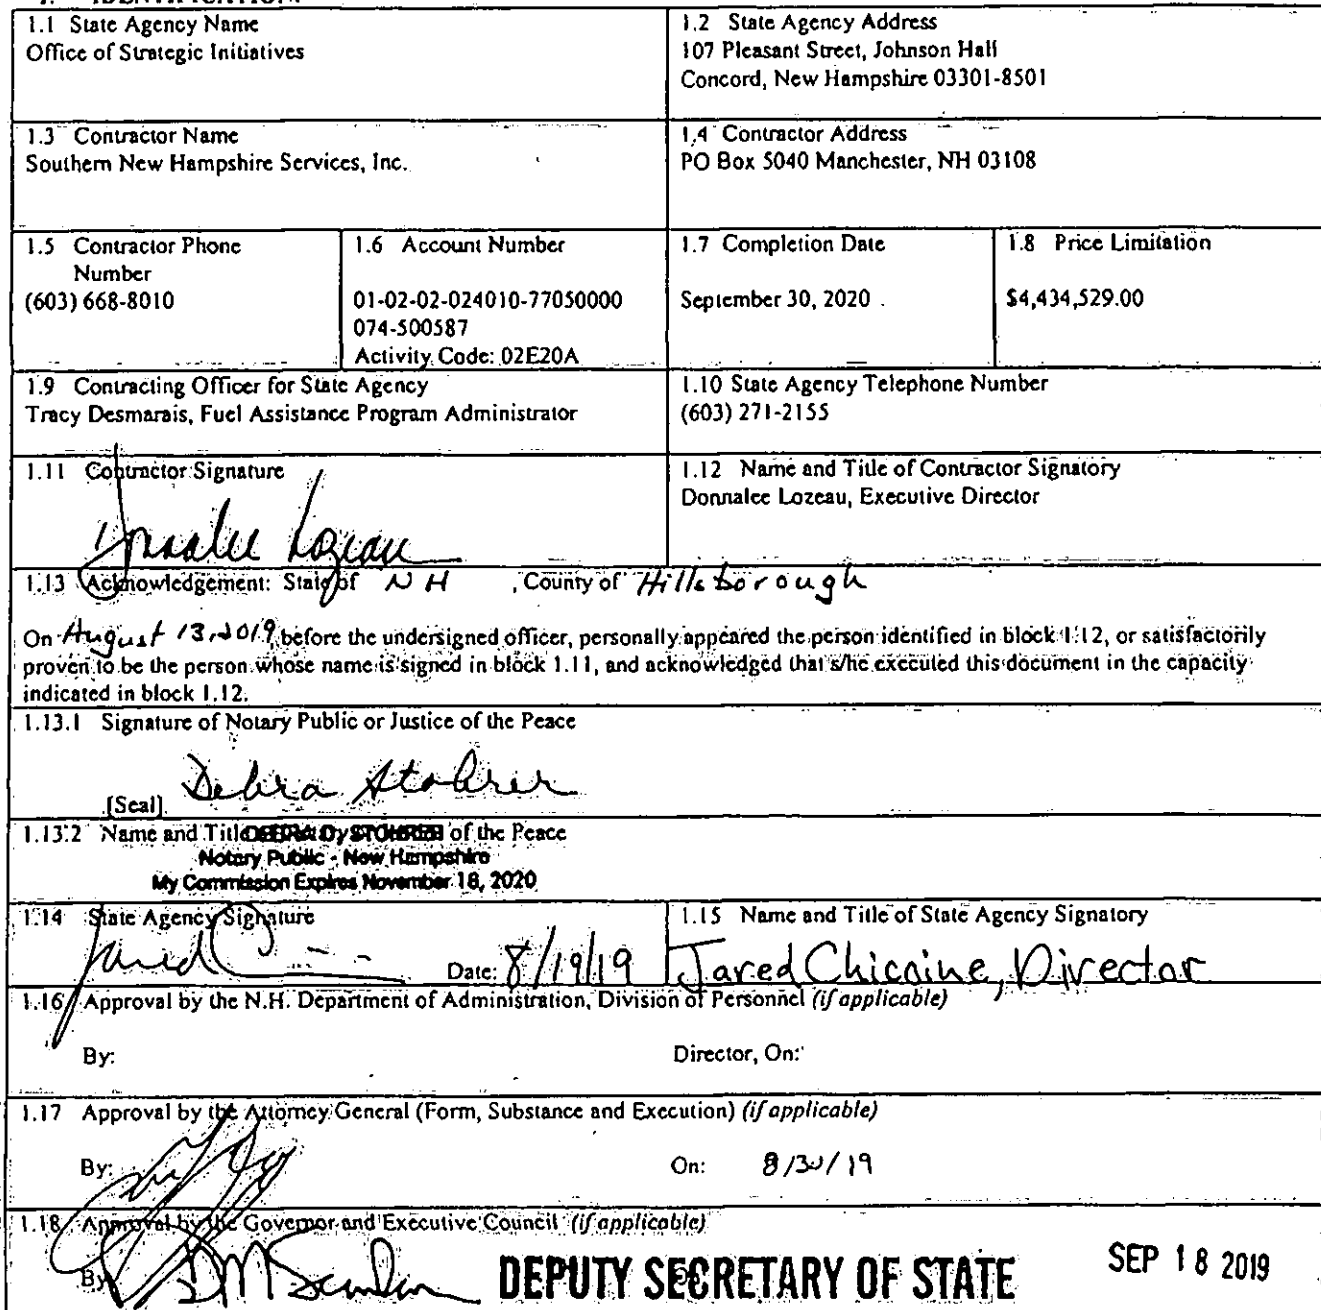 1.1 State Agency Name
Office of Strategic Initiatives
1.2 State Agency Address
107 Pleasant Street, Johnson Hall
Concord, New Hampshire 03301-8501
1.3 Contractor Name
Southern New Hampshire Services, Inc.
1.4 Contractor Address
PO Box 5040 Manchester, NH 03108
1.5 Contractor Phone
Number
(603) 668-8010
1.6 Account Number
01-02-02-024010-77050000
074-500587
Activity Code: 02E20A
1.7 Completion Date
September 30, 2020
1.8 Price Limitation
$4,434,529.00
1.9 Contracting Officer for State Agency
Tracy Desmarais, Fuel Assistance Program Administrator
1.10 State Agency Telephone Number
(603) 271-2155
1.11 Contractor Signature
Donnalee Lozeau
1.12 Name and Title of Contractor Signatory
Donnalee Lozeau, Executive Director
1.13 Acknowledgement: State of NH , County of Hillsborough
On August 13, 2019, before the undersigned officer, personally appeared the person identified in block 1.12, or satisfactorily
proven to be the person whose name is signed in block 1.11, and acknowledged that s/he executed this document in the capacity
indicated in block 1.12.
1.13.1 Signature of Notary Public or Justice of the Peace
Debra Stohrer
[Seal]
1.13.2 Name and Title of the Peace
Notary Public - New Hampshire
My Commission Expires November 18, 2020
1.14 State Agency Signature
Jared Date: 8/19/19
1.15 Name and Title of State Agency Signatory
Jared Chicoine, Director
1.16 Approval by the N.H. Department of Administration, Division of Personnel (if applicable)
By: Director, On:
1.17 Approval by the Attorney General (Form, Substance and Execution) (if applicable)
By: On: 8/30/19
1.18 Approval by the Governor and Executive Council (if applicable)
By: DEPUTY SECRETARY OF STATE SEP 18 2019